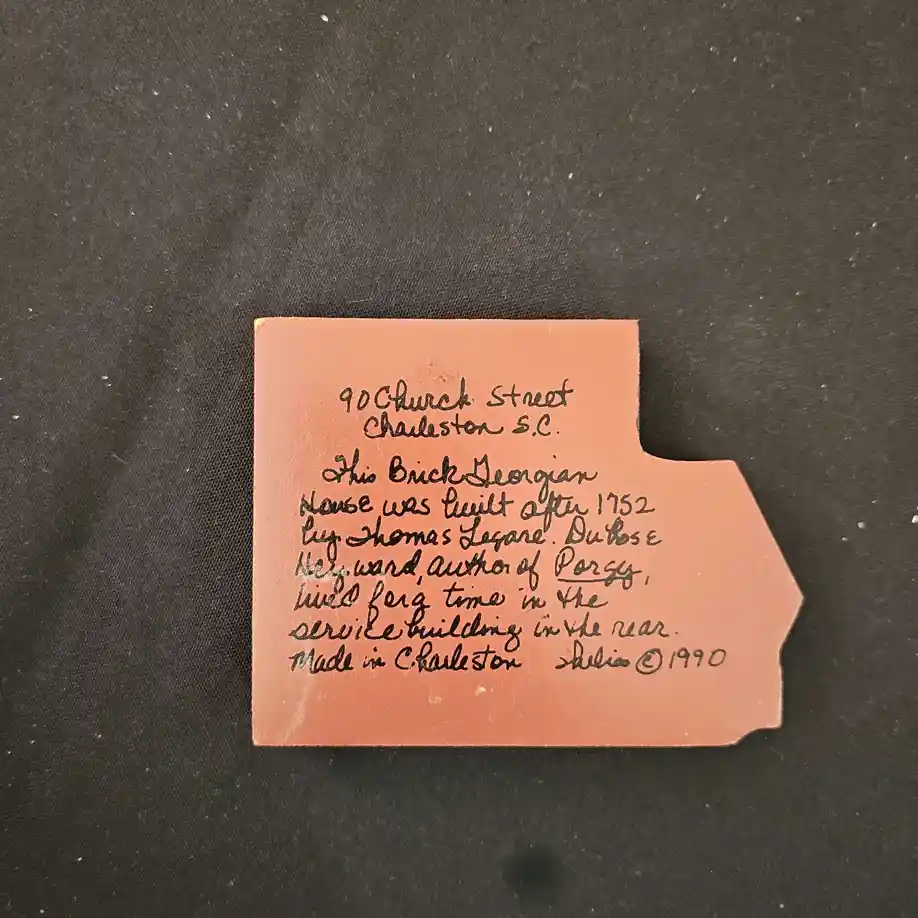 90 Church Street
Charleston S.C.
This Brick Georgian
House was built after 1752
by Thomas Legare. DuBose
Heyward, author of Porgy,
lived for a time in the
service building in the rear.
Made in Charleston Shelias © 1990